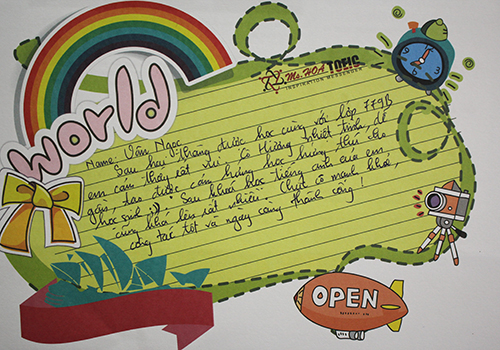 World
Ms. HOA TOEIC
INSPIRATION MESSENGER
Name: Vân Ngọc
Sau hai tháng được học cùng với lớp 779B
em cảm thấy rất vui. Cô Hường nhiệt tình, dễ
gần, tạo được cảm hứng học hứng thú cho
học sinh :)). Sau khoá học tiếng anh của em
cũng khá lên rất nhiều. Chúc cô mạnh khoẻ,
công tác tốt và ngày càng thành công!
OPEN